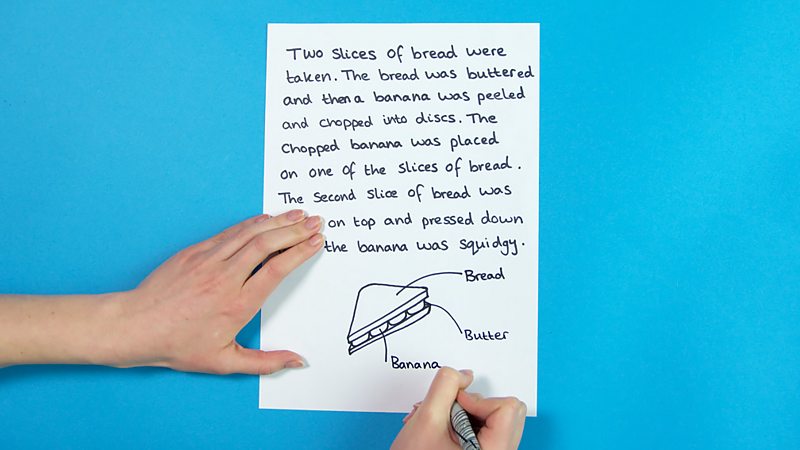 Two slices of bread were
taken. The bread was buttered
and then a banana was peeled
and chopped into discs. The
chopped banana was placed
on one of the slices of bread.
The second slice of bread was
on top and pressed down
the banana was squidgy.
Bread
Butter
Banana